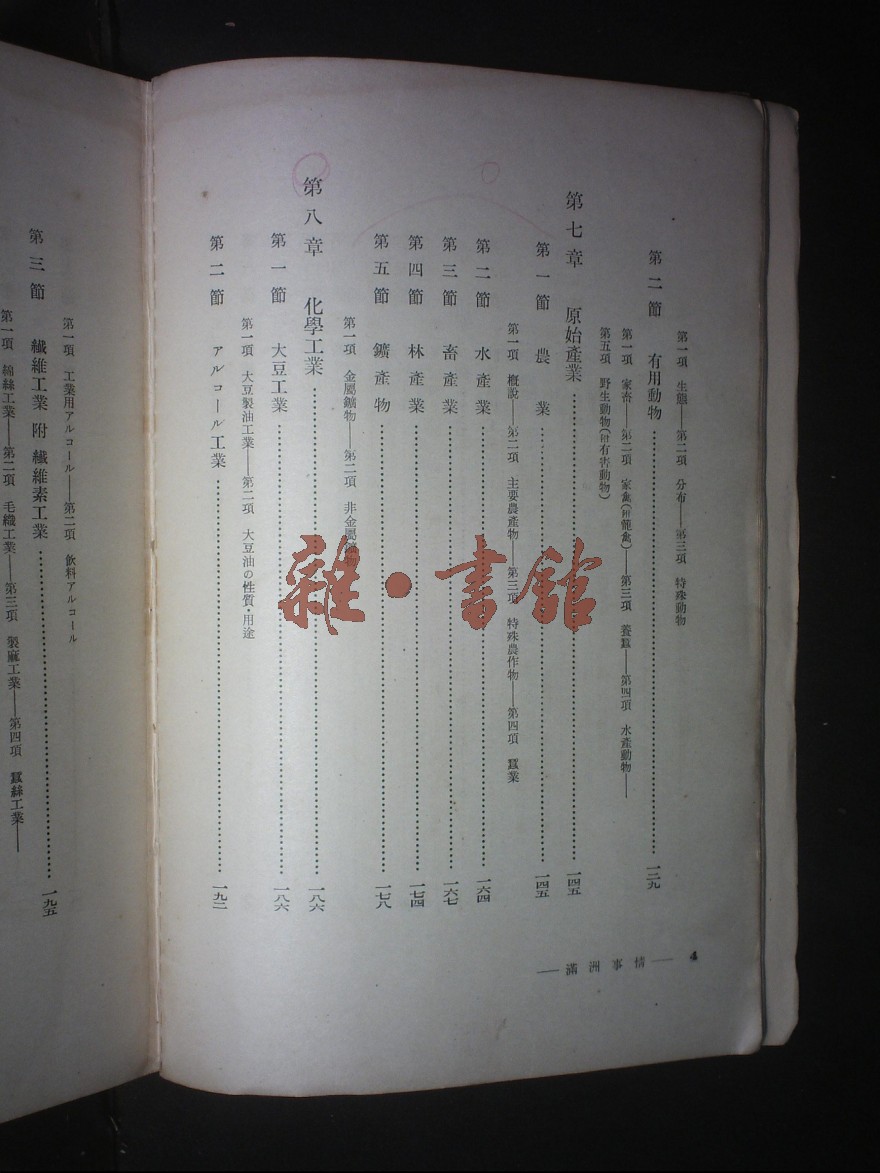 第一項 生態——第二項 分布——第三項 特殊動物
第二節 有用動物 一三九
第一項 家畜——第二項 家禽(附 籠禽)——第三項 養蠶——第四項 水產動物——
第五項 野生動物(附 有害動物)
第七章 原始產業 一四五
第一節 農業 一四五
第一項 概說——第二項 主要農產物——第三項 特殊農作物——第四項 蠶業
第二節 水產業 一六四
第三節 畜產業 一六七
第四節 林產業 一七四
第五節 鑛產物 一七八
第一項 金屬鑛物——第二項 非金屬鑛物
第八章 化學工業 一八六
第一節 大豆工業 一八六
第一項 大豆製油工業——第二項 大豆油の性質・用途
第二節 アルコール工業 一九二
—滿洲事情— 4
第一項 工業用アルコール——第二項 飲料アルコール
第三節 纎維工業 附 纎維素工業 一九五
第一項 綿絲工業——第二項 毛織工業——第三項 製麻工業——第四項 蠶絲工業——
雜・書館